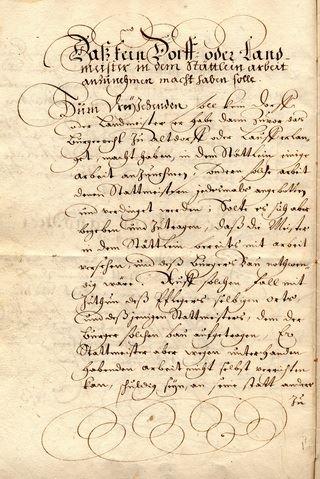 Daß kein Dorff- oder Land
meister in dem Stättlein arbeit
anzunehmen macht haben solle.
Zum Sechzehenden solle kein Dorff-
oder Landmeister er habe dann zuvor das
Burgerrecht zu Altdorff oder Lauff erlan-
get, macht haben, in dem Stättlein einige
arbeit anzunehmen, sondern solche arbeit
denen Stattmeistern jedesmals angebotten
und verdinget werden; Solte es sich aber
begeben und zutragen, daß die Meister
in dem Stättlein bereits mit arbeit
versehen, und deß Burgers bau nothwen-
dig wäre, Auff solchen fall mit
zuthun deß Pflegers selbigen orts
und deß jenigen Stattmeisters, dem der
Burger solchen bau aufgetragen, Er
Stattmeister aber wegen unterhanden
habenden arbeit nicht selbst verrichten
kan, schuldig seyn, an seine statt andere
zu